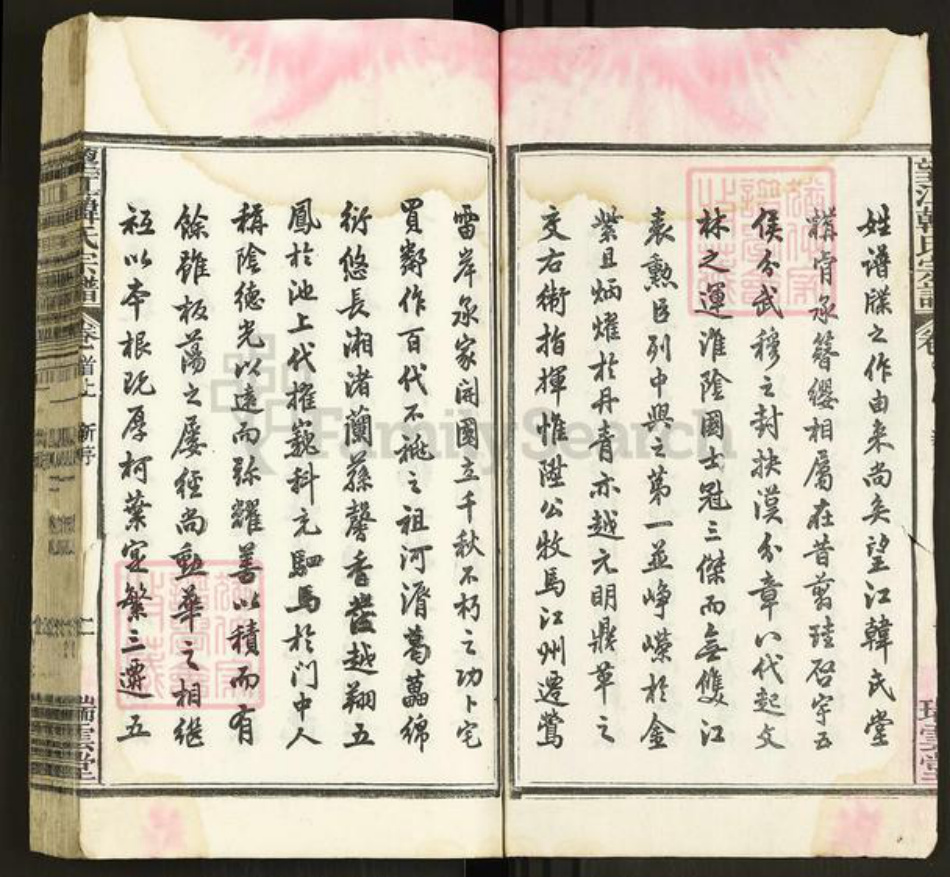 姓譜牒之作由来尚矣望江韓氏堂
構胥承簪纓相屬在昔剪珪啓宇五
侯分武穆之封抉漢分章八代起文
林之運淮陰國士冠三傑而無雙江
表勳臣列中興之第一並崢嶸於金
紫且炳燿於丹青亦越元明鼎革之
交右衛指揮惟陞公牧馬江州遷鶯
雷岸承家開國立千秋不朽之功卜宅
買鄰作百代不祧之祖河滸葛藟綿
衍悠長湘渚蘭蓀馨香發越翔五
鳳於池上代擢巍科充駟馬於門中人
稱陰德光以遠而弥耀善以積而有
餘雖板蕩之屢經尚勳華之相繼
祗以本根既厚柯葉寔繁三遷五
望江韓氏宗譜
卷首上
新序
瑞雲堂
FamilySearch